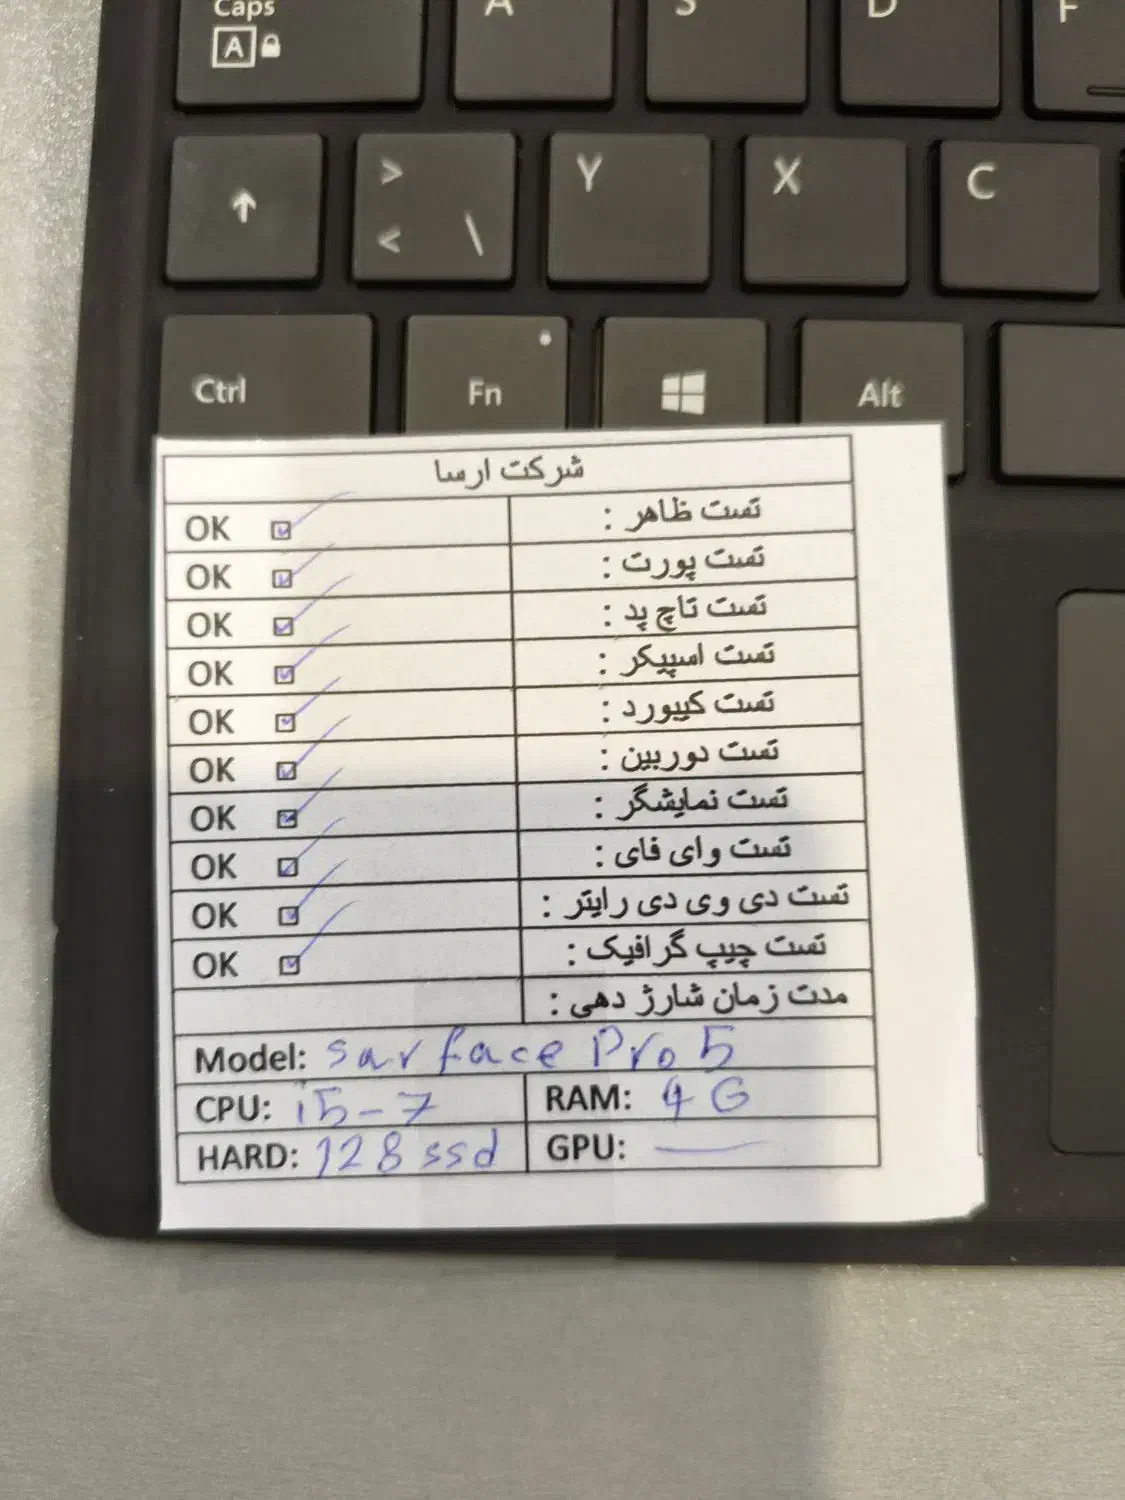 Caps A S D F
A
> Y X C
< \
Ctrl Fn Alt
شرکت ارسا
تست ظاهر : OK
تست پورت : OK
تست تاچ پد : OK
تست اسپیکر : OK
تست کیبورد : OK
تست دوربین : OK
تست نمایشگر : OK
تست وای فای : OK
تست دی وی دی رایتر : OK
تست چیپ گرافیک : OK
مدت زمان شارژ دهی :
Model: surface Pro 5
CPU: i5-7 RAM: 4G
HARD: 128 ssd GPU: —